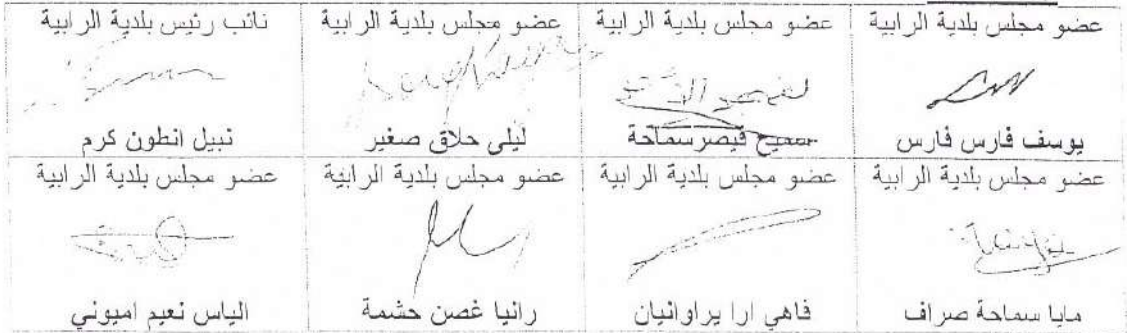 عضو مجلس بلدية الرابية
عضو مجلس بلدية الرابية
عضو مجلس بلدية الرابية
نائب رئيس بلدية الرابية
يوسف فارس فارس
سميح قيصر سماحة
ليلى حلاق صغير
نبيل انطون كرم
عضو مجلس بلدية الرابية
عضو مجلس بلدية الرابية
عضو مجلس بلدية الرابية
عضو مجلس بلدية الرابية
مايا سماحة صراف
فاهي ارا يراوانيان
رانيا غصن حشمة
الياس نعيم اميوني